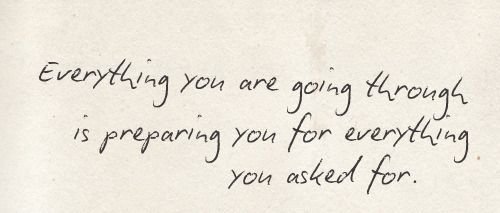 Everything you are going through
is preparing you for everything
you asked for.